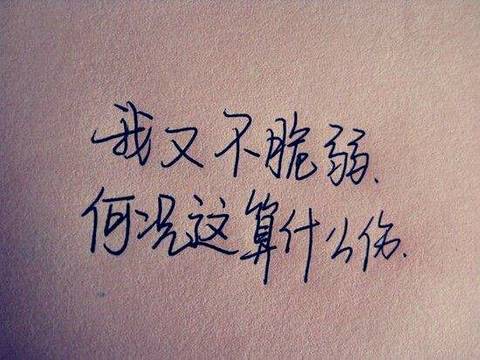 我又不脆弱、
何况这算什么伤.